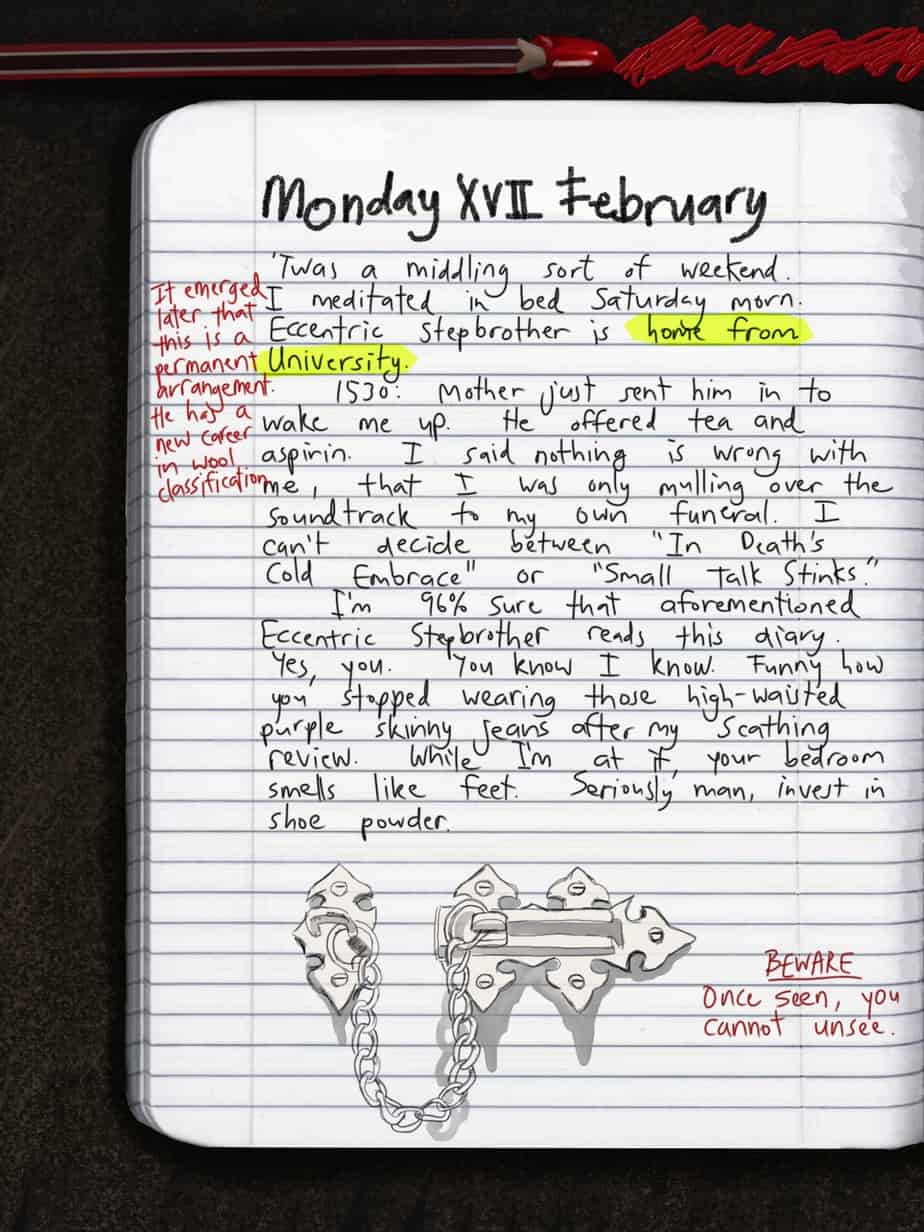 Monday XVII February
'Twas a middling sort of weekend.
I meditated in bed Saturday morn.
Eccentric Stepbrother is home from
University.
1530: Mother just sent him in to
wake me up. He offered tea and
aspirin. I said nothing is wrong with
me, that I was only mulling over the
soundtrack to my own funeral. I
can't decide between "In Death's
Cold Embrace" or "Small Talk Stinks."
I'm 96% sure that aforementioned
Eccentric Stepbrother reads this diary.
Yes, you. You know I know. Funny how
you stopped wearing those high-waisted
purple skinny jeans after my scathing
review. While I'm at it, your bedroom
smells like feet. Seriously man, invest in
shoe powder.
It emerged
later that
this is a
permanent
arrangement.
He has a
new career
in wool
classification.
BEWARE
Once seen, you
cannot unsee.